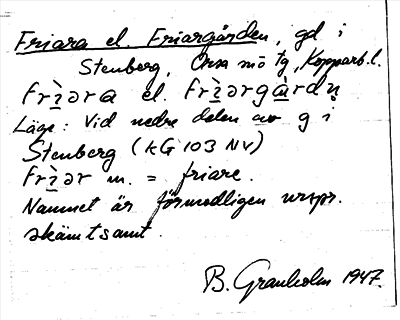 Friara el. Friargården, gd i
Stenberg, Orsa sn o tg, Kopparb. l.
frìəra el. frìərgàrdn̥
Läge: Vid nedre delen av g i
Stenberg (KG 103 NV)
frìər m. = friare.
Namnet är förmodligen urspr.
skämtsamt.
B. Granholm 1947.